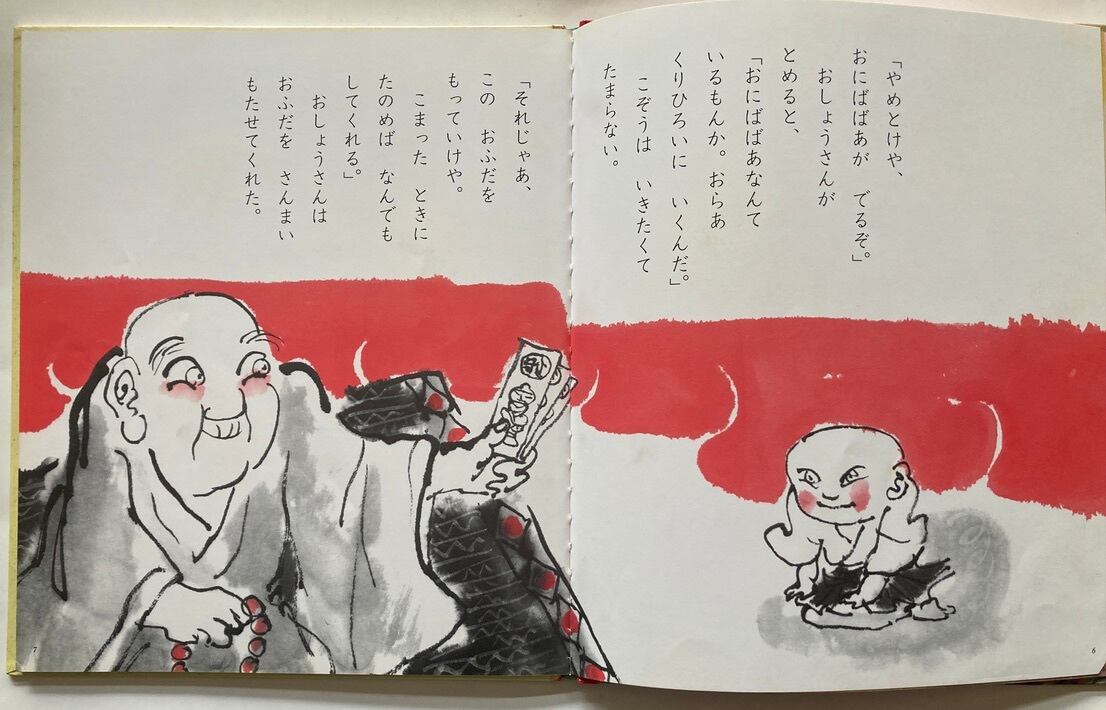 「やめとけや、
おにばばあが　でるぞ。」
おしょうさんが
とめると、
「おにばばあなんて
いるもんか。おらあ
くりひろいに　いくんだ。」
こぞうは　いきたくて
たまらない。
6
「それじゃあ、
この　おふだを
もっていけや。
こまった　ときに
たのめば　なんでも
してくれる。」
おしょうさんは
おふだを　さんまい
もたせてくれた。
7